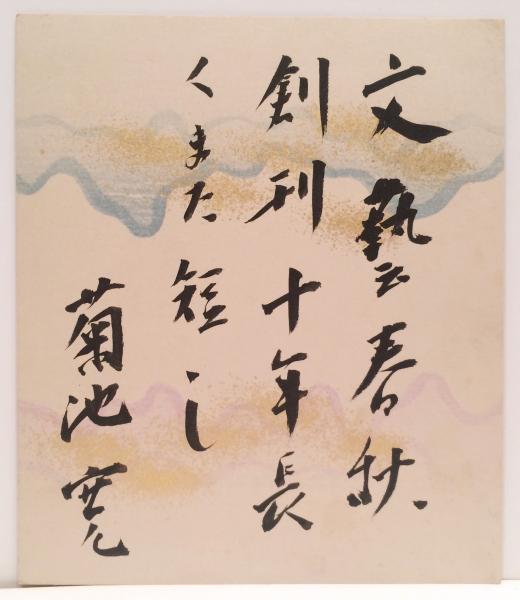 文藝春秋
創刊十年長
くまた短し
菊池寛